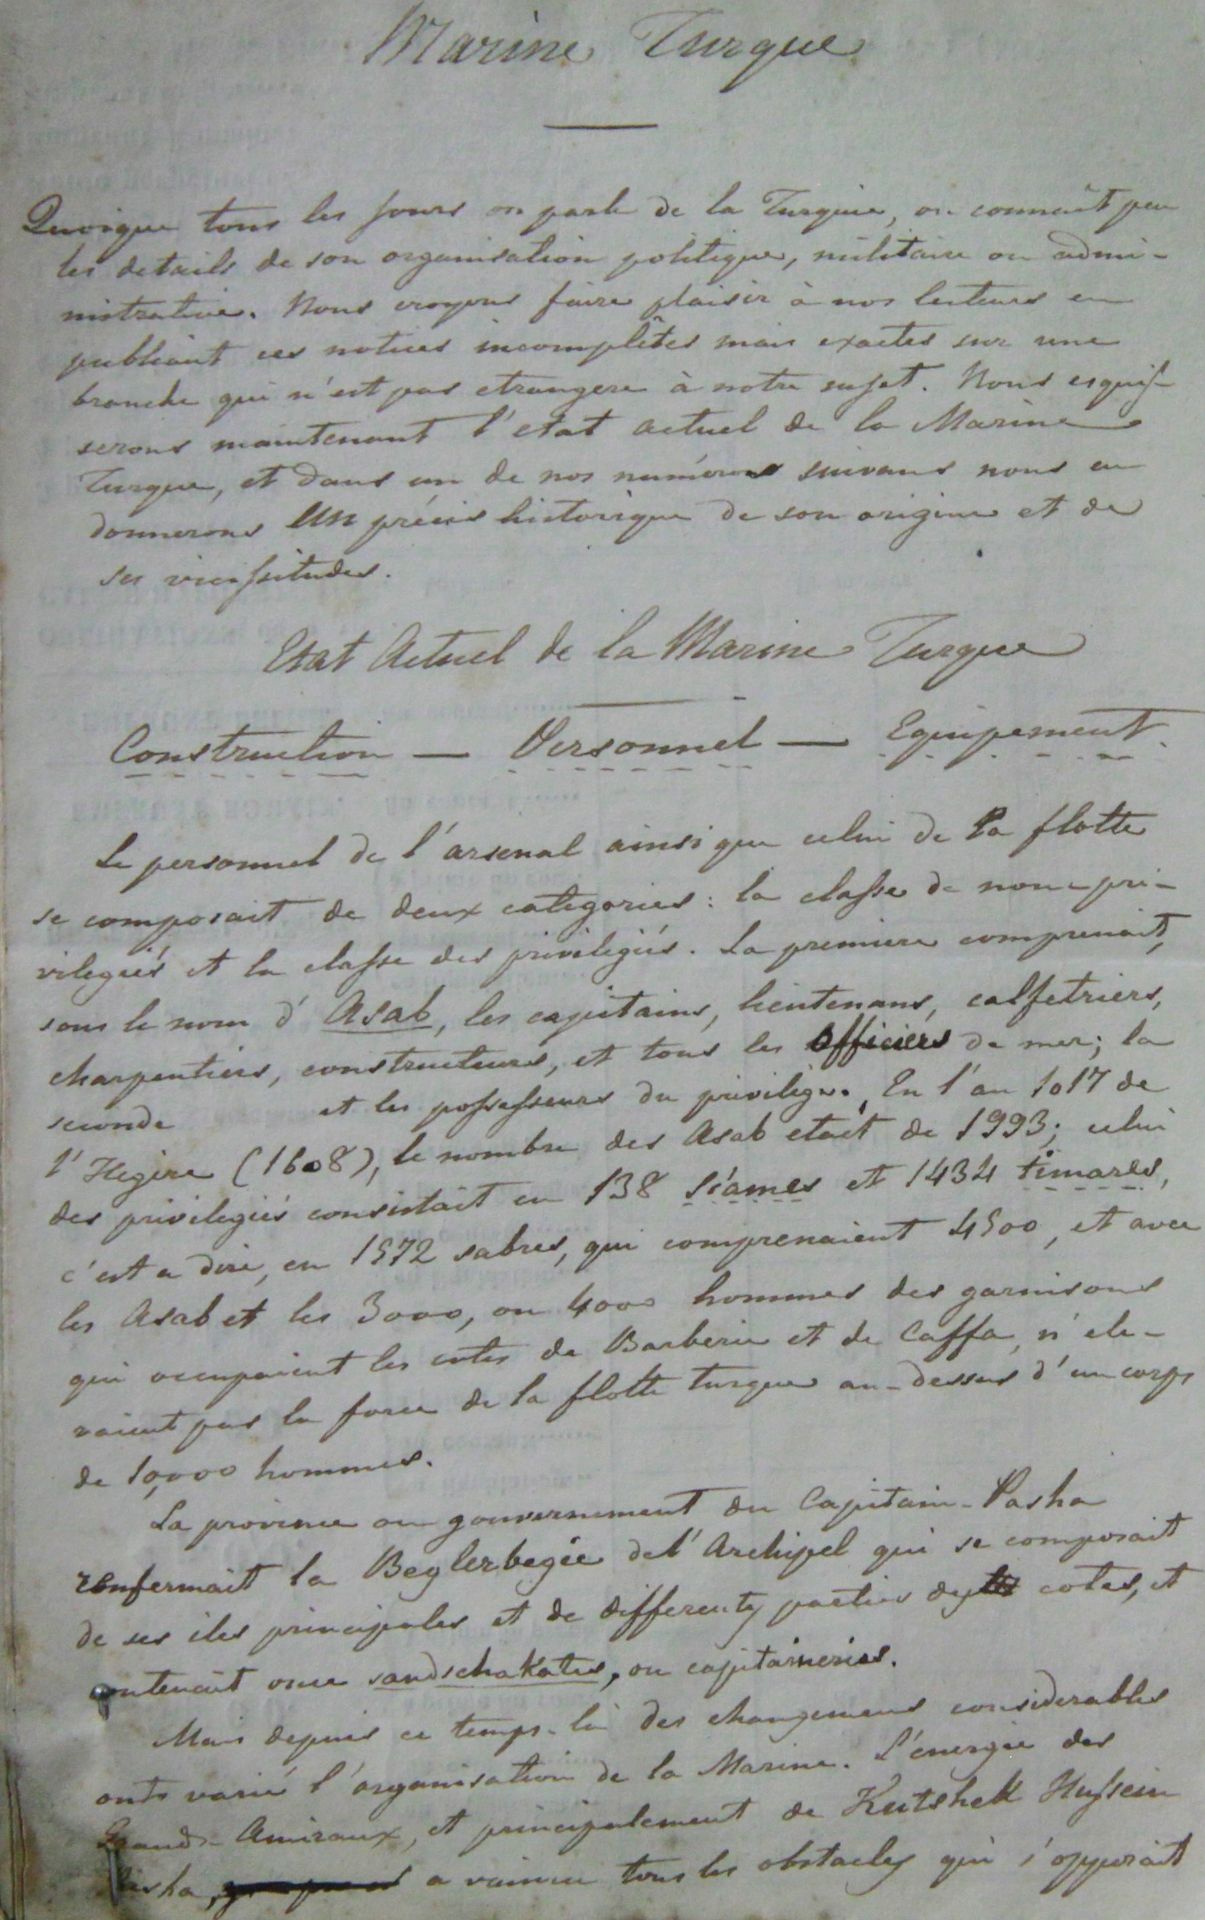 Marine Turque
Quoique tous les jours on parle de la Turquie, on connaît peu
les details de son organisation politique, militaire ou admi-
nistrative. Nous croyons faire plaisir à nos lecteurs en
publiant ces notices incomplêtes mais exactes sur une
branche qui n'est pas etrangere à notre sujet. Nous esquis-
serons maintenant l'etat actuel de la Marine
Turque, et dans un de nos numéros suivans nous en
donnerons un précis historique de son origine et de
ses vicissitudes.
Etat Actuel de la Marine Turque
Construction — Personnel — Equipement
Le personnel de l'arsenal ainsi que celui de la flotte
se composait de deux categories: la classe de non-pri-
vilegiés et la classe des privilegiés. La premiere comprenait,
sous le nom d'Asab, les capitains, lieutenans, calfetriers,
charpentiers, constructeurs, et tous les officiers de mer; la
seconde et les possesseurs du privilège. En l'an 1017 de
l'Hegire (1608), le nombre des Asab etait de 1993; celui
des privilegiés consistait en 138 siames et 1434 timares,
c'est a dire, en 1572 sabres, qui comprenaient 4500, et avec
les Asab et les 3000, ou 4000 hommes des garnisons
qui occupaient les cotes de Barberie et de Caffa, n'ele-
vaient pas la force de la flotte turque au-dessus d'un corps
de 10,000 hommes.
La province ou gouvernement du Capitain-Pasha
renfermait la Beglerbegée de l'Archipel qui se composait
de ses iles principales et de differents parties des cotes, et
contenait onze sandschakates, ou capitaineries.
Mais depuis ce temps-là des changemens considerables
onts varié l'organisation de la Marine. L'energie des
Grands-Amiraux, et principalement de Kutshek Hussein
Pasha, a vaincu tous les obstacles qui s'opposait